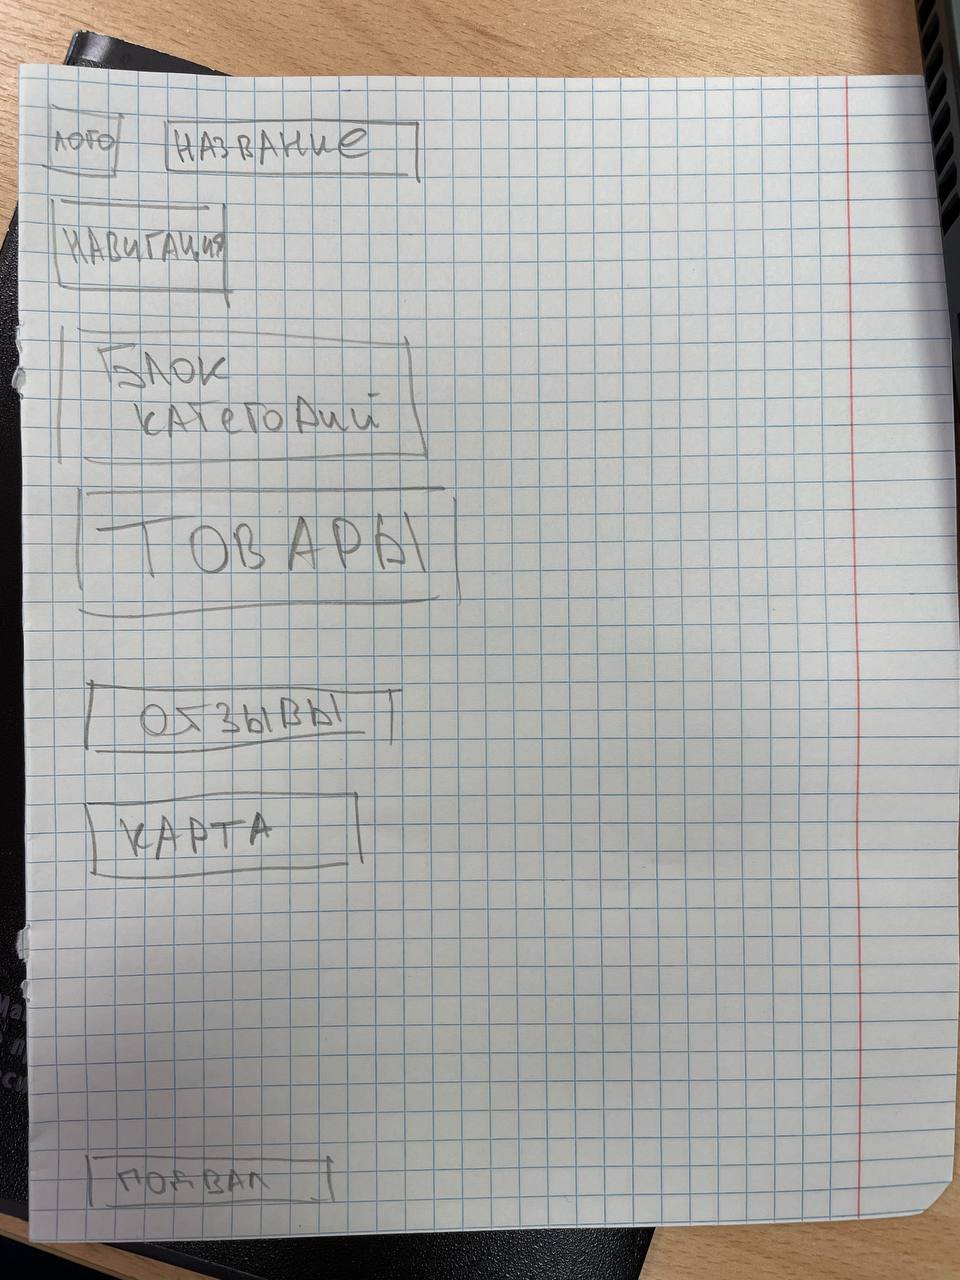 ЛОГО НАЗВАНИЕ
НАВИГАЦИЯ
БЛОК
КАТЕГОРИЙ
ТОВАРЫ
ОТЗЫВЫ
КАРТА
ПОДВАЛ